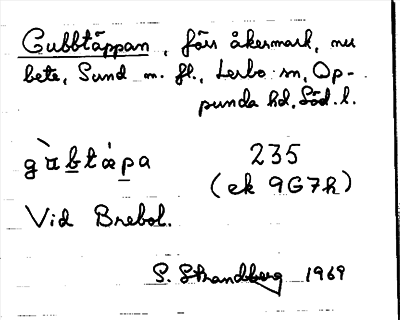 Gubbtäppan, förr åkermark, nu
bete, Sund m. fl., Lerbo sn, Op-
punda hd, Söd. l.
gàbtápa 235
(ek 9G7h)
Vid Brebol.
S. Strandberg 1969